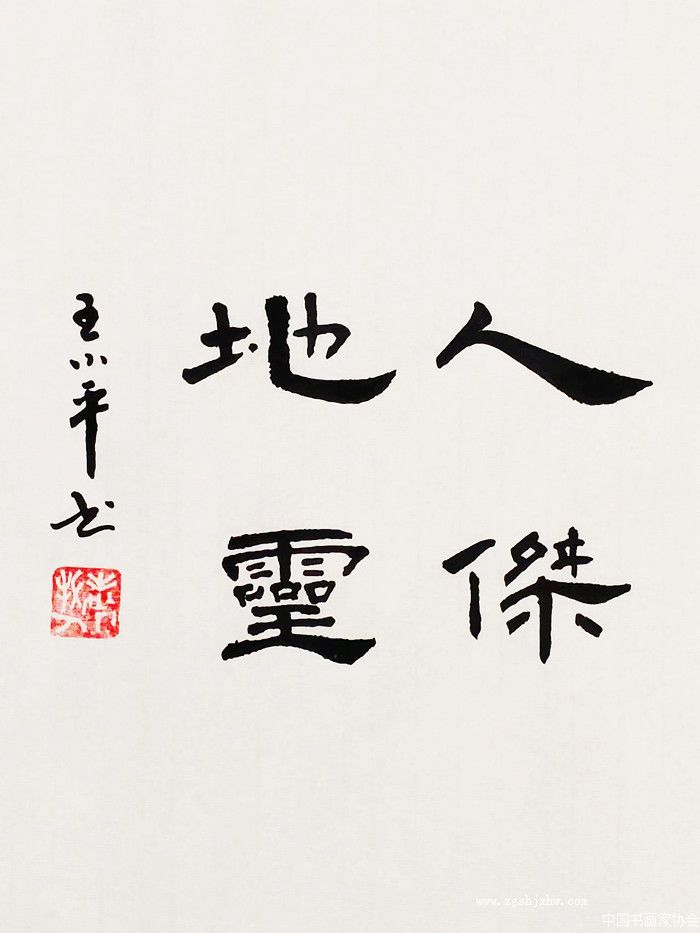 人傑
地靈
王小平书
www.zgshjxhw.com
中国书画家协会